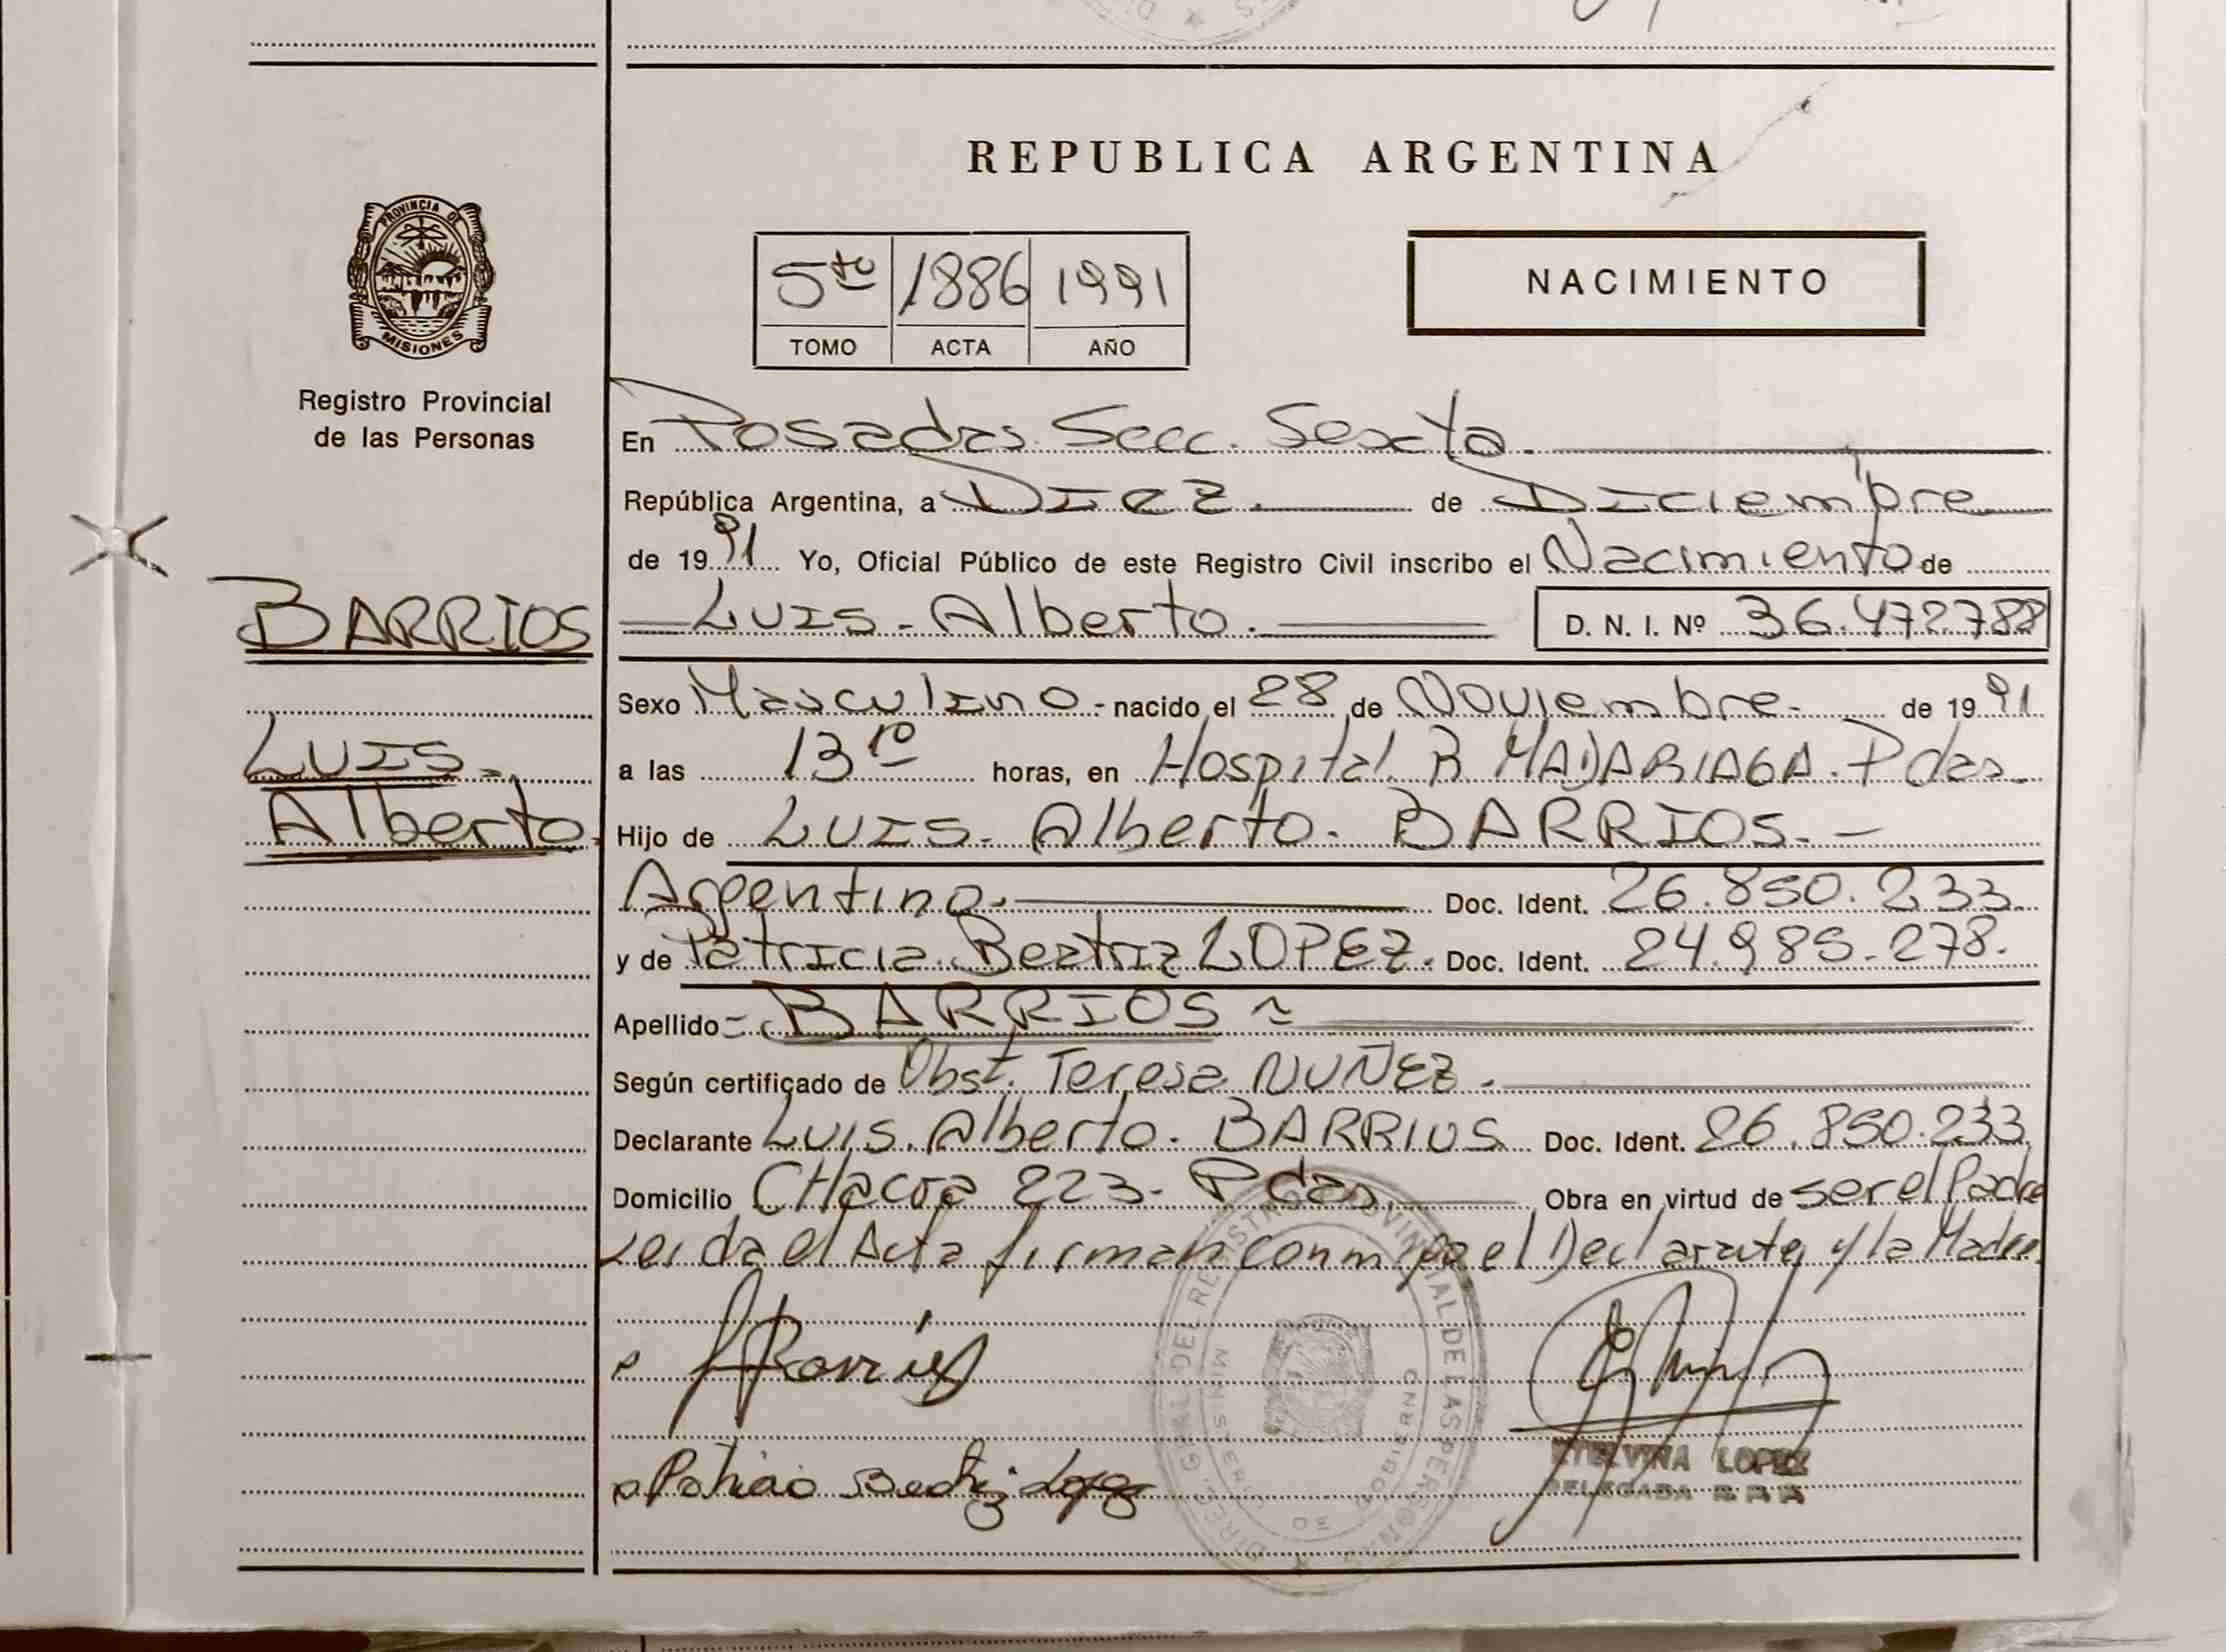 REPUBLICA ARGENTINA
PROVINCIA DE
MISIONES
Registro Provincial
de las Personas
5to 1886 1991
TOMO ACTA AÑO
NACIMIENTO
En Posadas Secc. Sexta.
República Argentina, a Diez. de Diciembre
de 1991 Yo, Oficial Público de este Registro Civil inscribo el Nacimiento de
BARRIOS
Luis - Alberto. D. N. I. Nº 36.472.788
Sexo Masculino - nacido el 28 de Noviembre - de 1991
Luis -
a las 13 10 horas, en Hospital R MADARIAGA. Pdas.
Alberto.
Hijo de Luis - Alberto - BARRIOS. -
Argentino. Doc. Ident. 26.850.233
y de Patricia Beatriz LOPEZ. Doc. Ident. 24.985.278.
Apellido = BARRIOS ~
Según certificado de Obst. Teresa NUÑEZ.
Declarante Luis. Alberto. BARRIOS Doc. Ident. 26.850.233
Domicilio CHacra 223 - Pdas. Obra en virtud de ser el Padre
Leida el Acta firman conmigo el Declarante y la Madre.
Patricia Beatriz Lopez
ETELVINA LOPEZ
DELEGADA
DIREC. GRAL. DEL REGISTRO PROVINCIAL DE LAS PERSONAS
MINISTERIO DE GOBIERNO